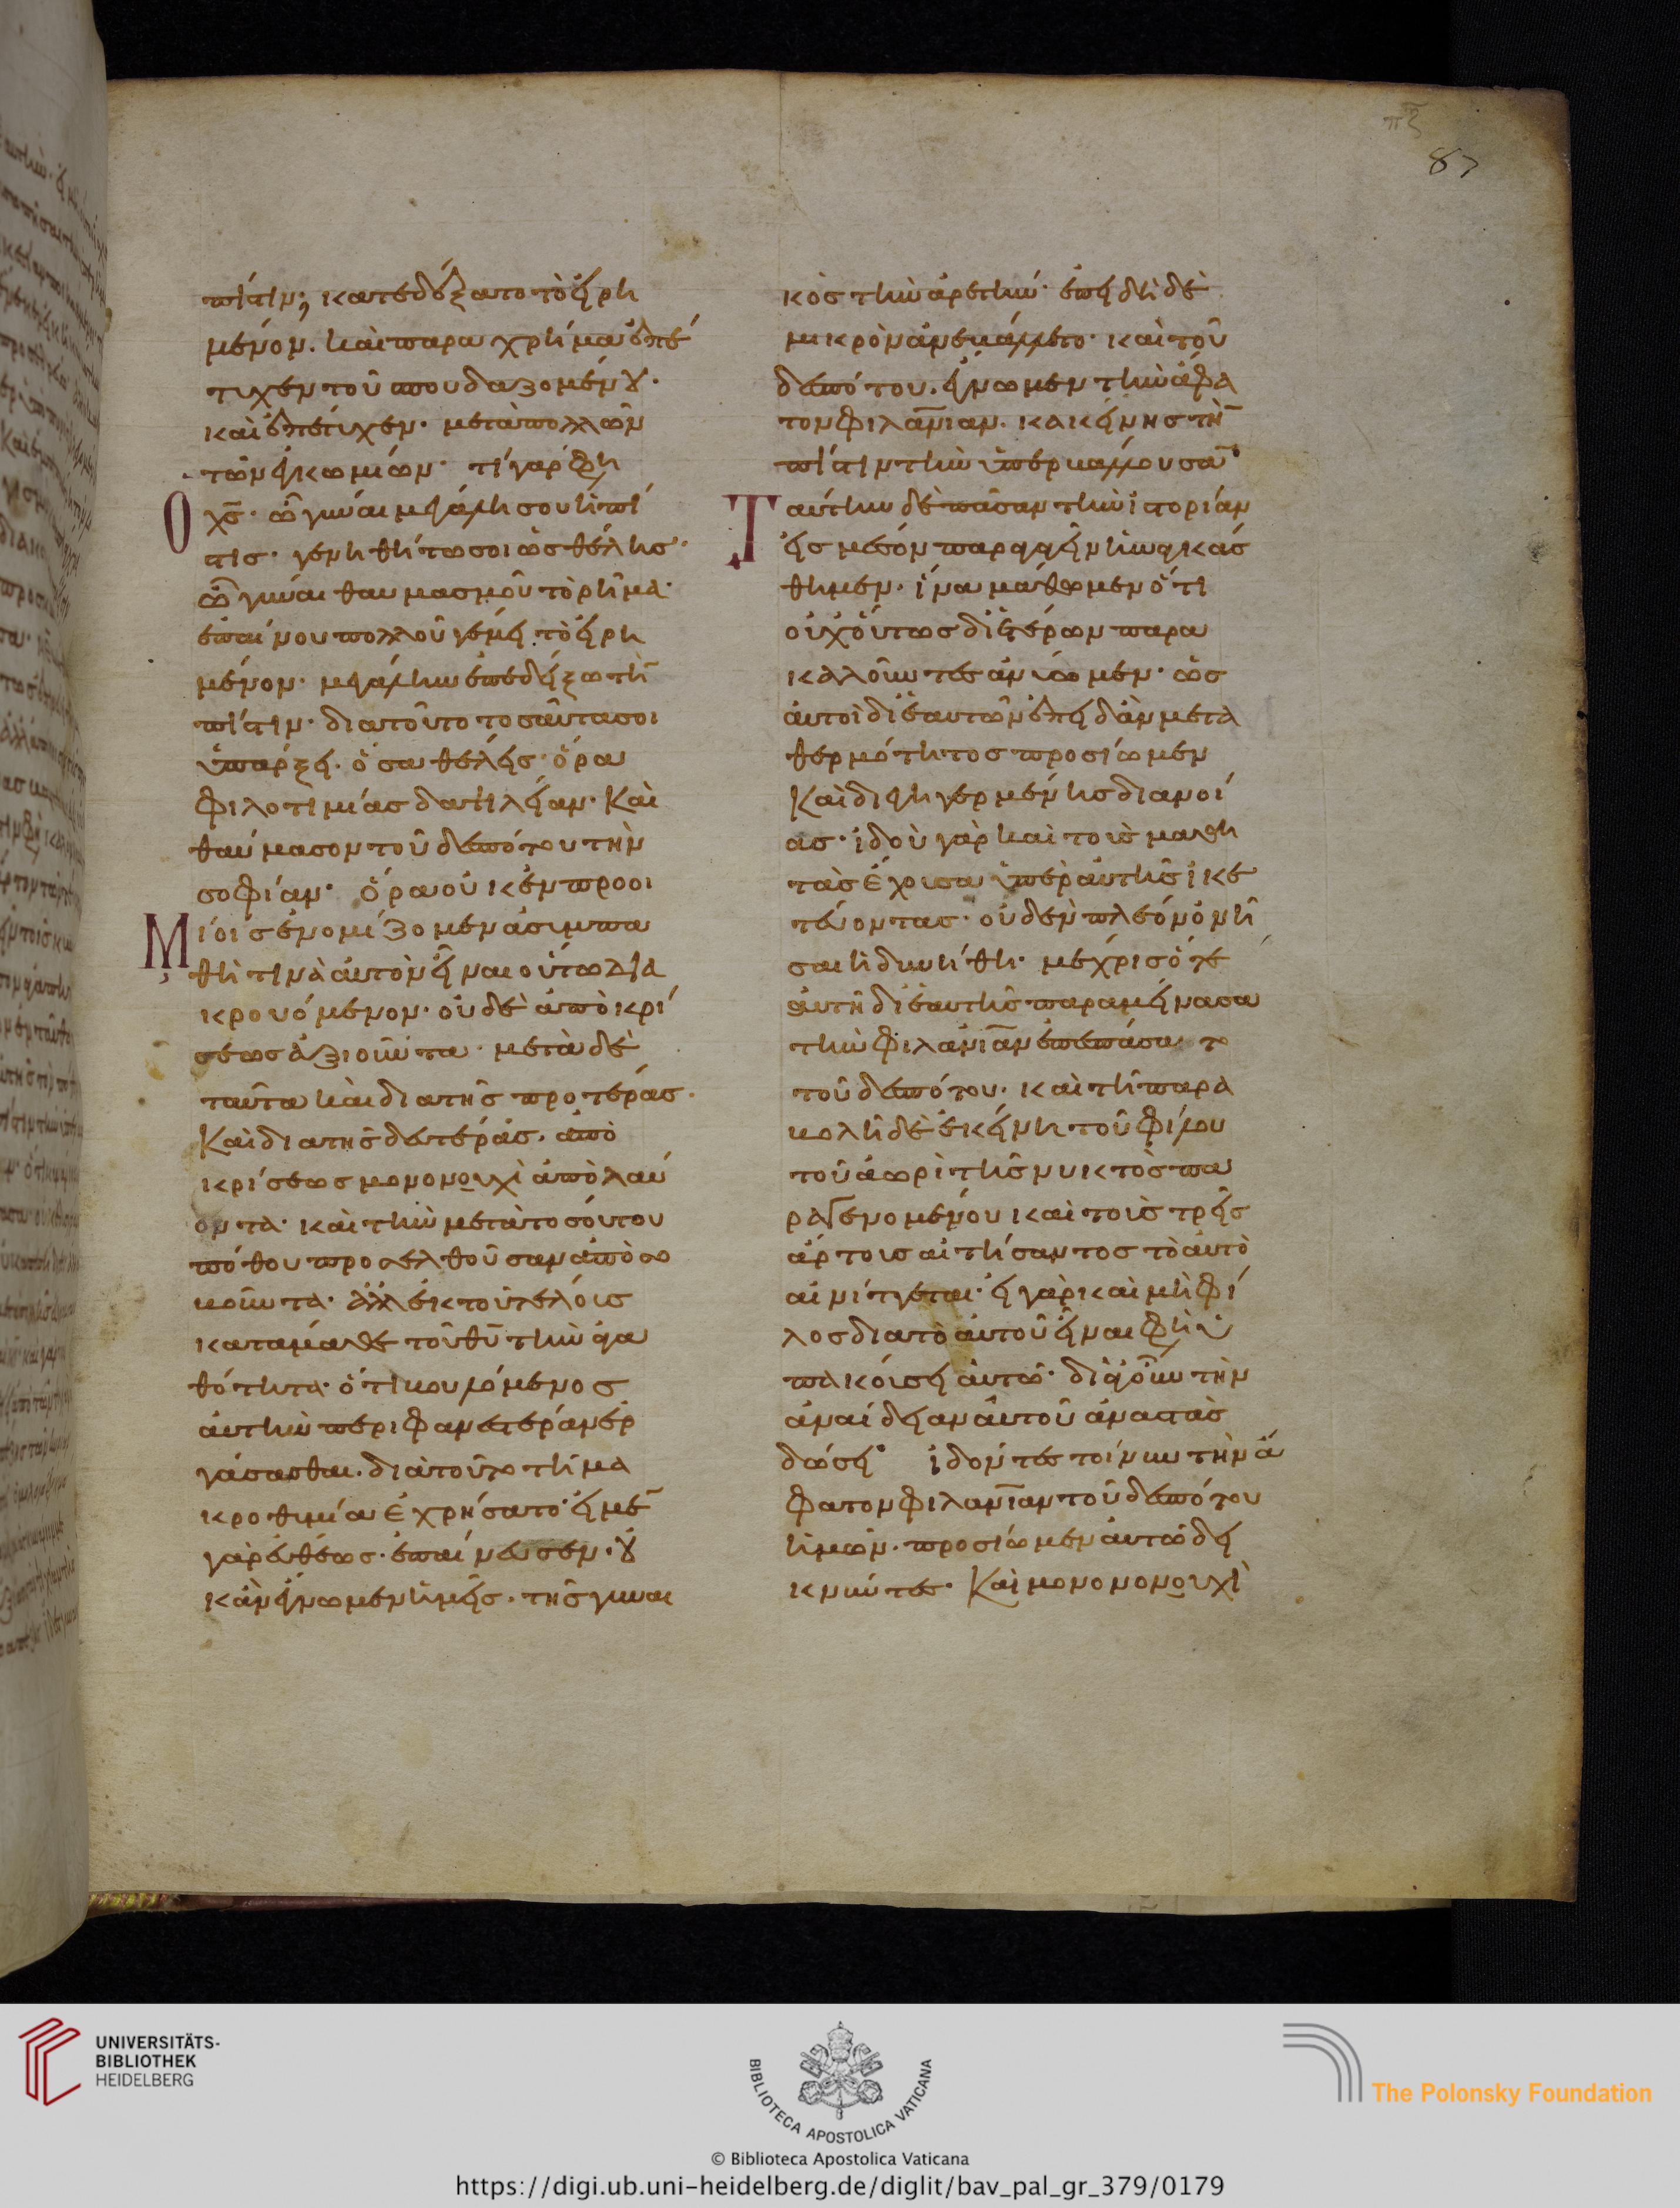 πζ
87
πίστιν; κατεδέξατο τὸ ἠρη
μένον. καὶ παρα χρῆμα ἐπέ
τυχεν τοῦ σπουδαζομένου.
καὶ ἐπέτυχεν. μετὰ πολλῶν
τῶν ἐγκωμίων. τί γάρ φη
Ο χς. ὦ γύναι μεγάλη σου ἡ πί
στις. γενηθήτω σοι ὡς θέλης.
ὦ γύναι θαυμασμοῦ τὸ ρῆμα.
ἐπαίνου πολλοῦ γέμει τὸ εἰρη
μένον. μεγάλην ἐπεδείξω τὴ
πίστιν. διατοῦτο τοσαῦτα σοι
ὑπάρξει. ὅσα θέλεις. ὅρα
φιλοτιμίας δαψιλείαν. Καὶ
θαύμασον τοῦ δεσπότου τὴν
σοφίαν. ὅρα οὐκ ἐν προοι
Μίοις ἐνομίζομεν ἀσυμπα
θῆ τινὰ αὐτὸν εἶναι οὕτω δια
κρουόμενον. οὐδὲ ἀποκρί
σεως ἀξιοῦντα. μετὰ δὲ
ταῦτα καὶ δια τῆς προτέρας.
Καὶ δια τῆς δευτέρας. ἀπο
κρίσεως μονονουχὶ ἀπολαύ
οντα. καὶ τὴν μετὰ τοσούτου
πόθου προσελθοῦσαν ἀποσο
βοῦντα. ἀλλ ἐκ τοῦ τέλους
καταμαθε τοῦ θυ τὴν ἀγα
θότητα. ὅτι βουλόμενος
αὐτὴν περιφανεστέραν ἐρ
γάσασθαι. διὰτοῦτο τῆ μα
κροθυμία ἐχρήσατο. εἰ μὲ
γὰρ εὐθέως. ἐπαίνευσεν. οὐ
κἂν ἔγνωμεν ἡμεῖς. τῆς γυναι
κὸς τὴν ἀρετήν. ἐπειδὴ δὲ
μικρὸν ἀνεβάλλετο. καὶ τοῦ
δεσπότου. ἔγνωμεν τὴν ἄφα
τον φιλανιαν. κἀκείνης τὴ
πίστιν τὴν ὑπερβάλλουσα.
Ταύτην δὲ πᾶσαν τὴν ἱστορίαν
εἰς μέσον παραγαγεῖν ἠναγκάσ
θημεν. ἵνα μάθωμεν ὅτι
οὐχ οὕτως δι ἑτέρων παρα
καλοῦντες ἀνύομεν. ὡς
αὐτοὶ δι ἑαυτῶν ἐπειδὰν μετὰ
θερμότητος προσίωμεν
Καὶ διεγηγερμένης διανοί
ας. ἰδοὺ γὰρ καὶ τοὺς μαθη
τὰς ἔχουσα ὑπὲρ αὐτῆς ἱκε
τεύοντας. οὐδὲν πλέον ὀνῆ
σαι ἠδυνήθη. μέχρις ὅτε
αὐτὴ δι ἑαυτῆς παραμείνασα
τὴν φιλανιαν ἐπεσπάσατο
τοῦ δεσπότου. καὶ τῆ παρα
βολῆ δὲ ἐκείνη τοῦ φίλου
τοῦ ἀωρὶ τῆς νυκτὸς πα
ραγενομένου καὶ τοὺς τρεῖς
ἄρτους αἰτήσαντος τὸ αὐτὸ
αἰνίττεται. εἰ γὰρ καὶ μὴ φί
λος διατὸ αὐτοῦ εἶναι φησὶν ὑ
πακούσει αὐτῶ. δι ἀγοῦν τὴν
ἀναίδειαν αὐτοῦ ἀναστὰς
δώσει. ἰδόντες τοίνυν τὴν ἄ
φατον φιλανιαν τοῦ δεσπότου
ἡμῶν. προσίωμεν αὐτῶ δει
κνύντες. Καὶ μονονονουχὶ
UNIVERSITÄTS-
BIBLIOTHEK
HEIDELBERG
BIBLIOTECA APOSTOLICA VATICANA
The Polonsky Foundation
© Biblioteca Apostolica Vaticana
https://digi.ub.uni-heidelberg.de/diglit/bav_pal_gr_379/0179